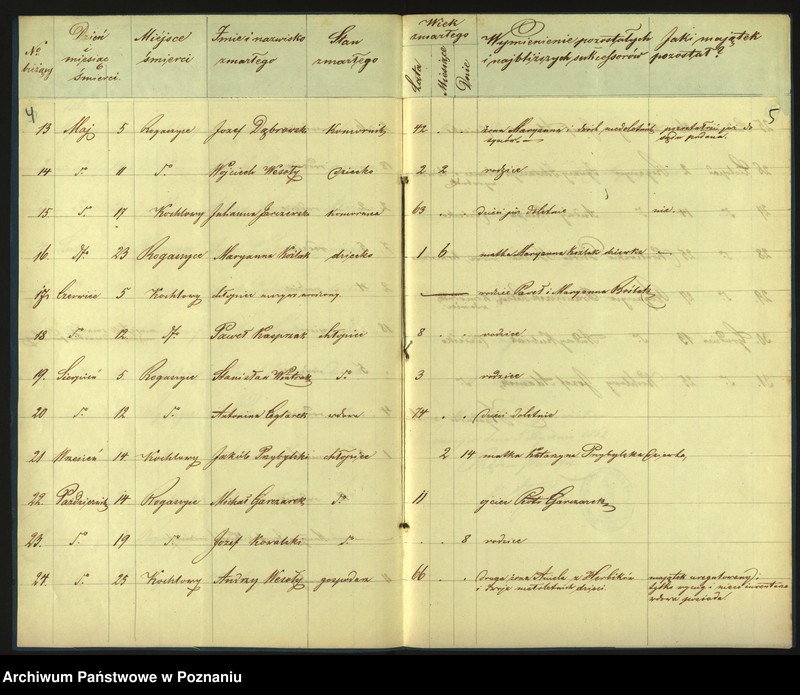 No bieżący Dzień i miesiąc śmierci. Miejsce śmierci Imie i nazwisko zmarłego Stan zmarłego Wiek zmarłego Lata Miesiące Dnie Wymienienie pozostałych i najbliższych sukcesorów Jaki majątek pozostał?
4 5
13 Maj 5 Rogaszyce Jozef Dąbrowski Komornik 42 . . żona Maryanna i dzieci niedoletnich pozostałość już do sądu podana.
14 d. 11 d. Wojciech Wesoły dziecko 2 2 rodzice
15. d. 17 Kochłowy Julianna Jarczewska komorna 63 . . dzieci już doletnie nie.
16. d. 23 Rogaszyce Maryanna Koźlak dziecko 1 6 matka Maryanna Koźlak dziewka
17. Czerwiec 5 Kochłowy chłopiec rodzice Paweł i Maryanna
18 d. 12. d. Paweł Kasprzak chłopiec 8 . . rodzice
19. Sierpień 5. Rogaszyce Stanisław d. 3 rodzice
20 d. 12 d. Antonina Ceglarek wdowa 74 . . dzieci doletnie
21 Wrzesień 14 Kochłowy Jakób Przybylski chłopiec 2 14 matka Katarzyna Przybylska
22. Październik 14 Rogaszyce Michał Garczarek d. 11 ojciec Piotr Garczarek
23. d. 19 d. Jozef Kowalski d. . . 8 rodzice
24. d. 25 Kochłowy Andrzy Wesoły gospodarz 66 . . Druga żona Aniela z Herbików i dwoje małoletnich dzieci. majątek uregulowany; tylko wymg i nieco inwentarza wdowa posiada.
Archiwum Państwowe w Poznaniu